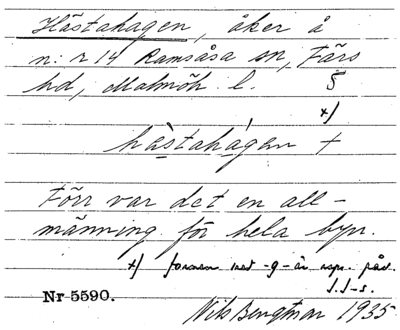 Hästahagen, åker å
n: r 14 Ramsåsa sn, Färs
hd, Malmöh. l. §
x)
hästahagen +
Förr var det en all-
männing för hela byn.
x) formen med -g- är upr. påv.
I. I-s.
Nr 5590.
Nils Bengtson 1935